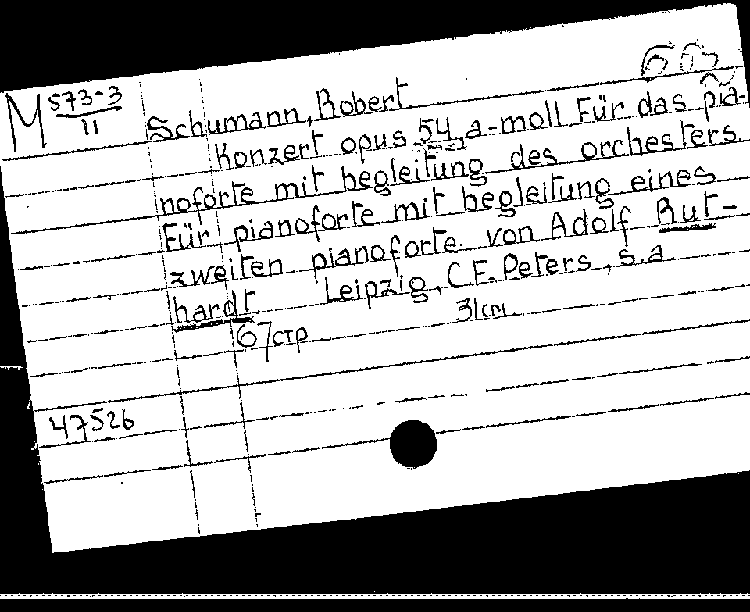 M 573-3
11
Schumann, Robert.
Konzert opus 54, a-moll Für das pia-
noforte mit begleitung des orchesters.
Für pianoforte mit begleitung eines
zweiten pianoforte von Adolf Rut-
hardt Leipzig, C.F. Peters, s.a
67стр 31см.
47526